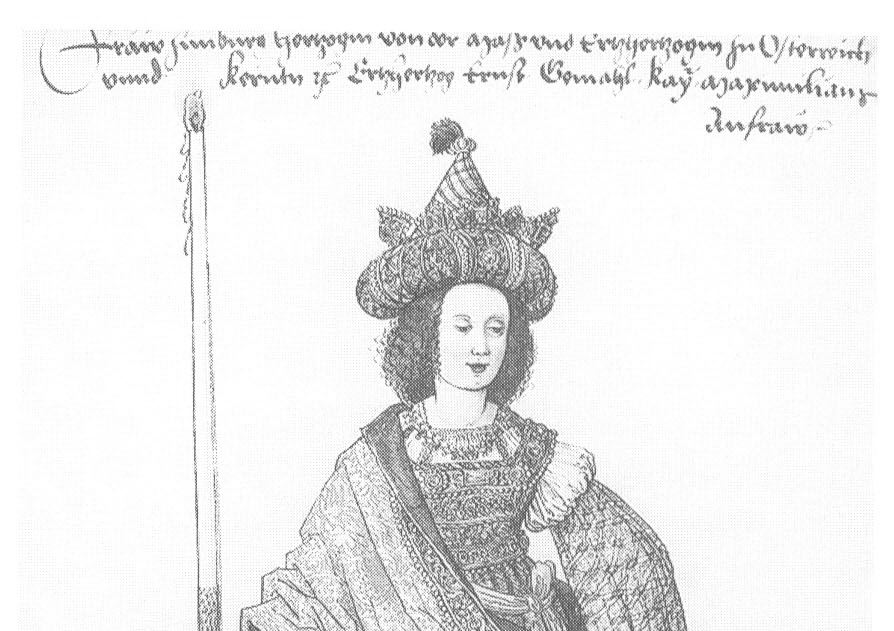 Fraw Zimburg Hertzogin von der Maß vnd Ertzhertzogin zu Osterreich
vnnd Kerntn ꝛc Ertzhertzog Ernst Gemahl Kay Maximilians
Anfraw